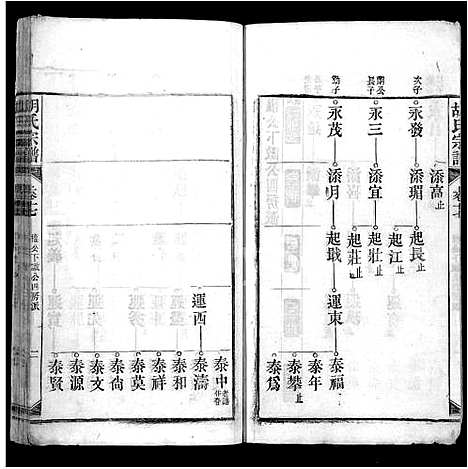 胡氏宗譜
卷七
次子
永發
添高 止
添瑂
起長 止
起江 止
蘭公長子
永三
添宜
起壯 止
起莊 止
永茂
添月
起戢
運東
泰福
泰年
泰攀 止
泰為
胡氏宗譜
卷七
公下誠公四房派
二
運西
泰中
泰濤
泰和
泰祥
泰莫
泰尚
泰文
泰源
泰賢